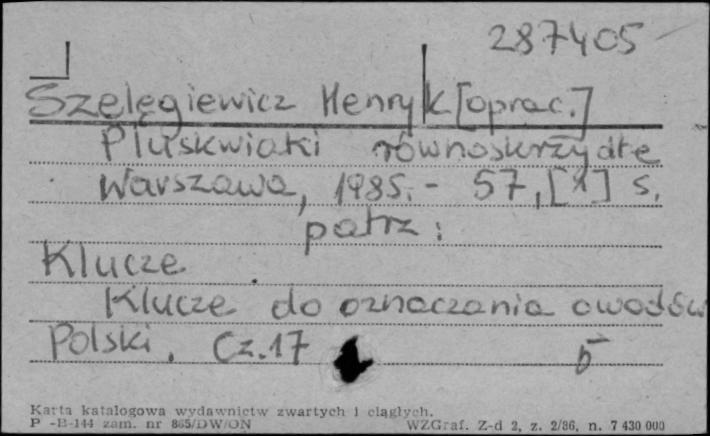 287405
Szelęgiewicz Henryk [oprac.]
Pluskwiaki równoskrzydłe
Warszawa, 1985. - 57, [1] s.
patrz:
Klucze
Klucze do oznaczania owadów
Polski. Cz. 17 5
Karta katalogowa wydawnictw zwartych i ciągłych.
P -B-144 zam. nr 865/DW/ON WZGraf. Z-d 2, z. 2/86, n. 7 430 000